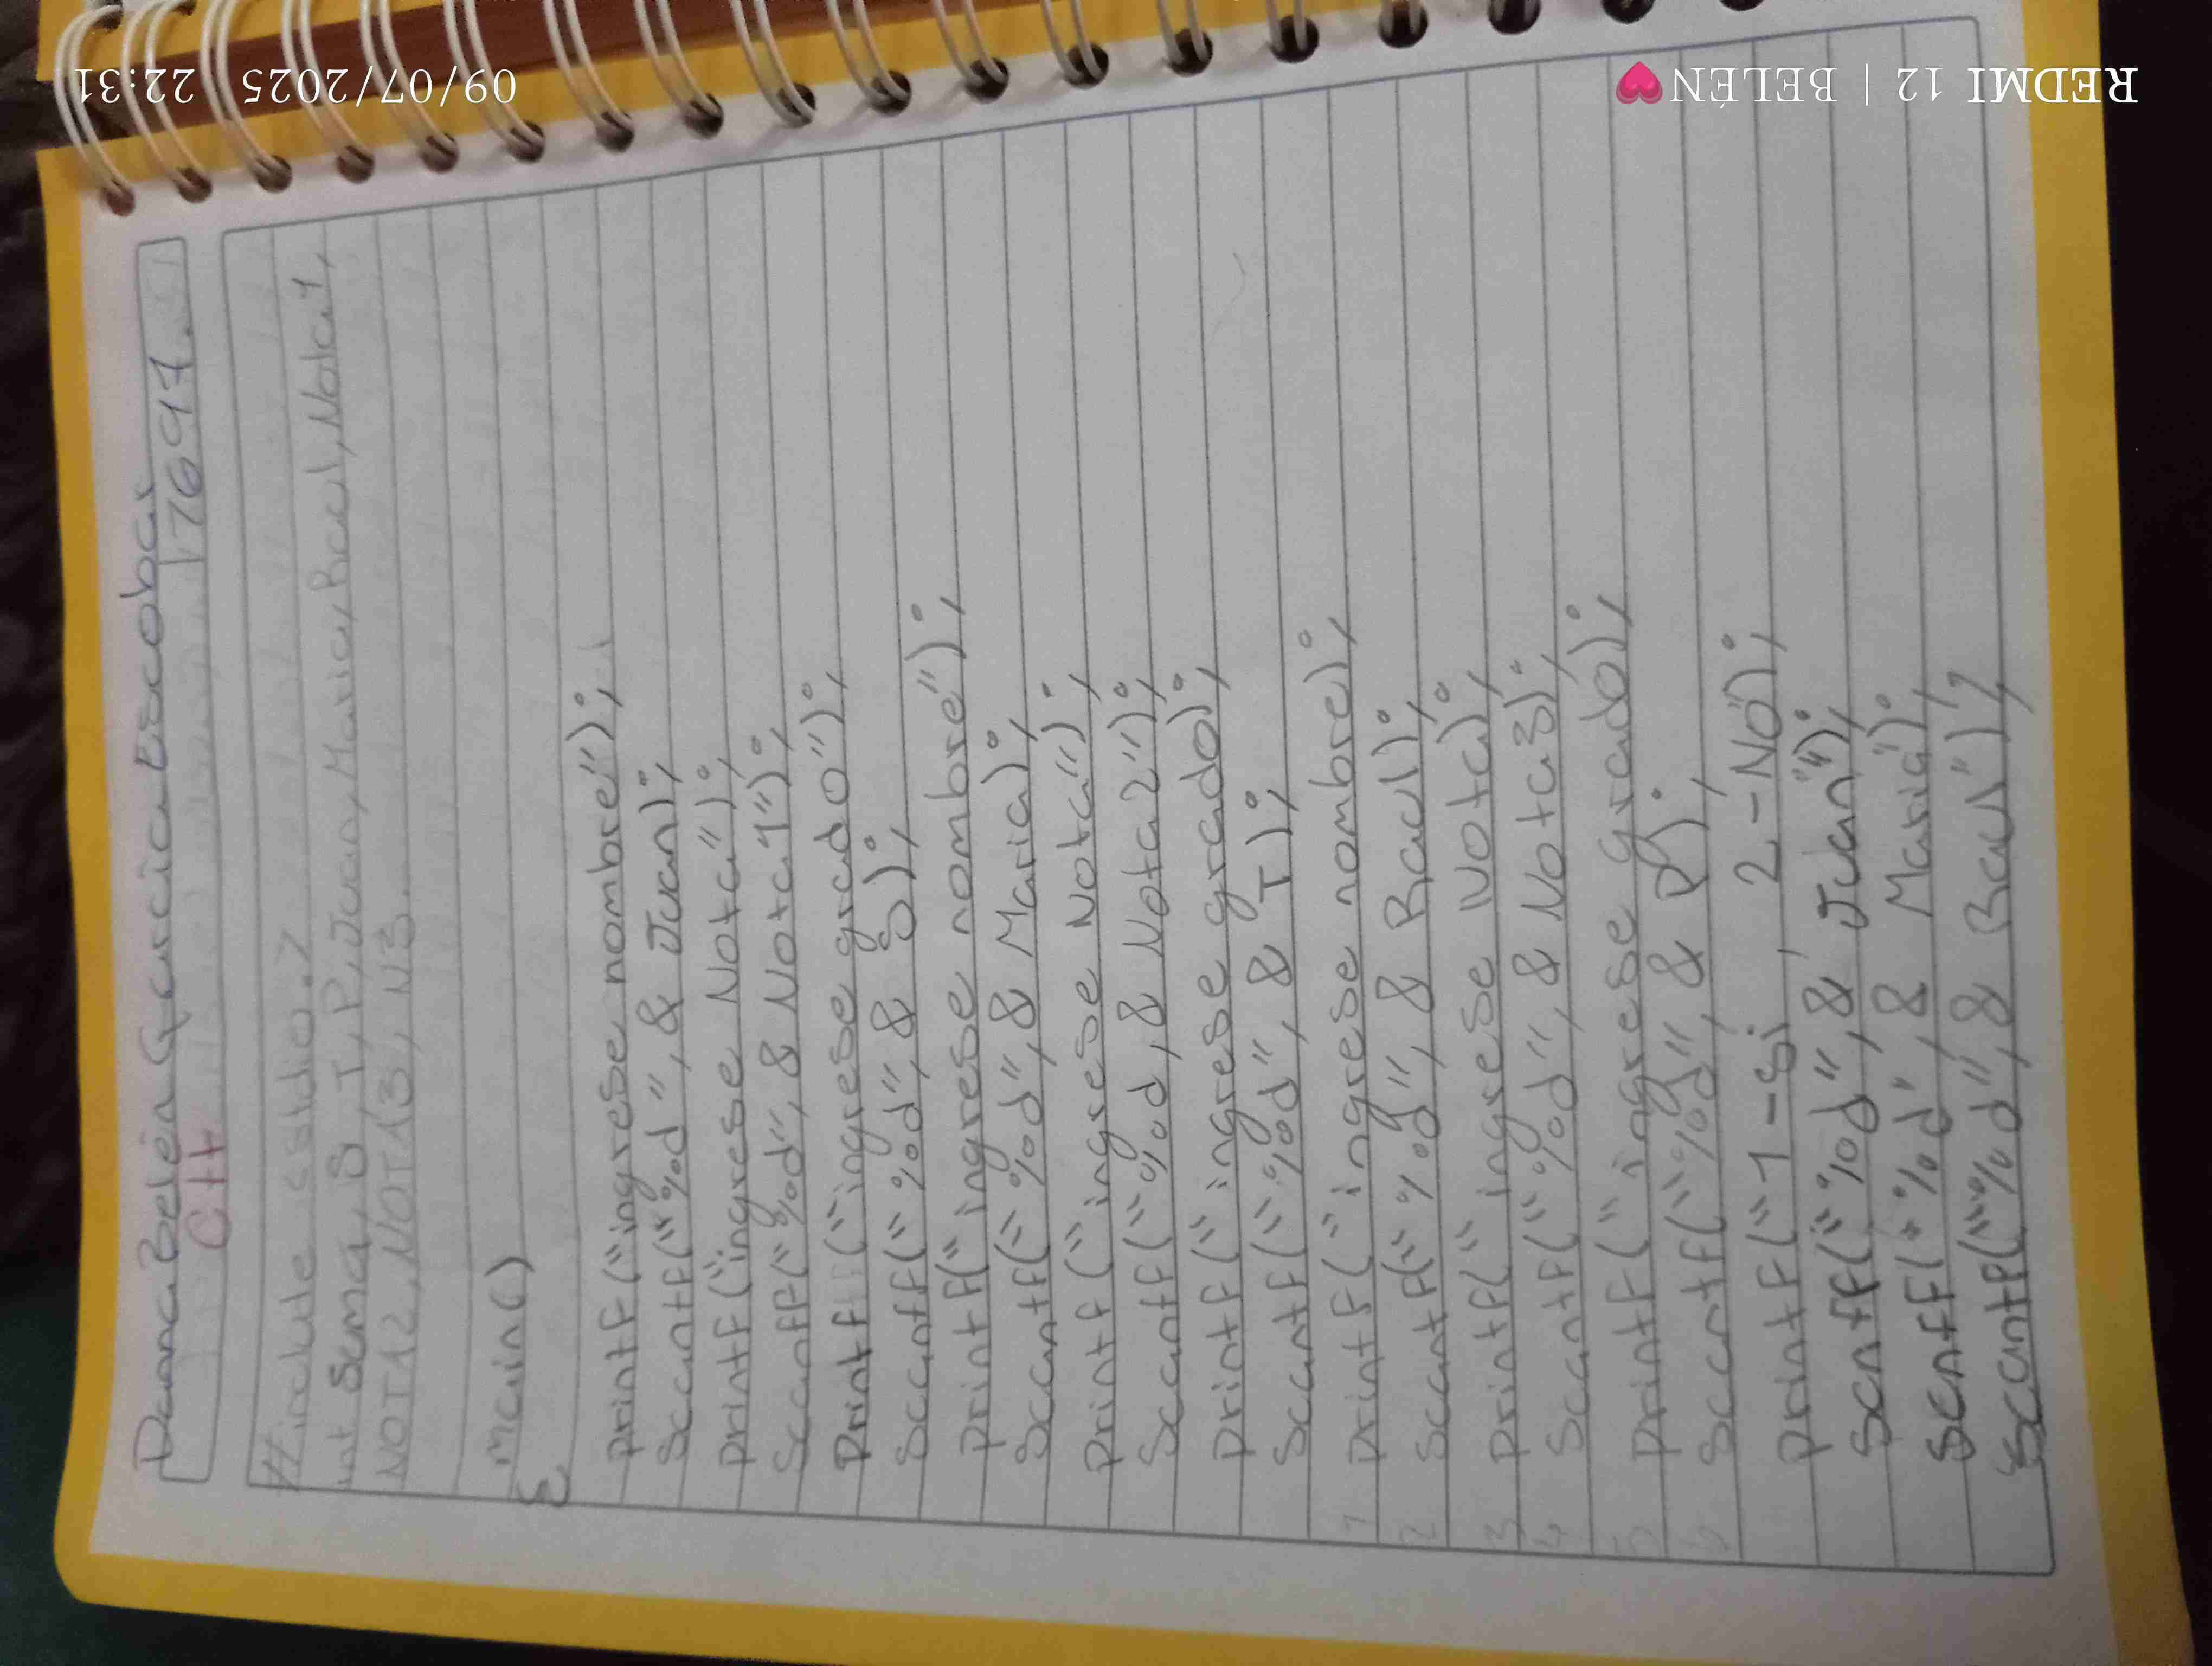 Dana Belén García Escobar
C++ 17697.
# include <stdio.>
int Sema, S, T, P, Juan, Maria, Raul, Nota1,
NOTA2, NOTA3, N3.
main()
{
printf("ingrese nombre");
Scantf("%d", & Juan);
printf("ingrese Nota");
Scantf("%d", & Nota1");
Printf("ingrese grado");
Scantf("%d", & S);
printf("ingrese nombre");
Scantf("%d", & Maria);
Printf("ingrese Nota");
Scantf("%d, & Nota2");
printf("ingrese grado);
Scantf("%d", & T);
1 printf("ingrese nombre);
2 Scantf("%d", & Raul);
3 printf("ingrese Nota);
4 Scantf("%d", & Nota3);
5 printf("ingrese grado);
6 Scantf("%d", & P);
printf("1-Si, 2.-No");
Scntf("%d", & Juan");
Scntf("%d", & Maria");
Scantf("%d", & Raul");
REDMI 12 | BELÉN
09/07/2025 22:31